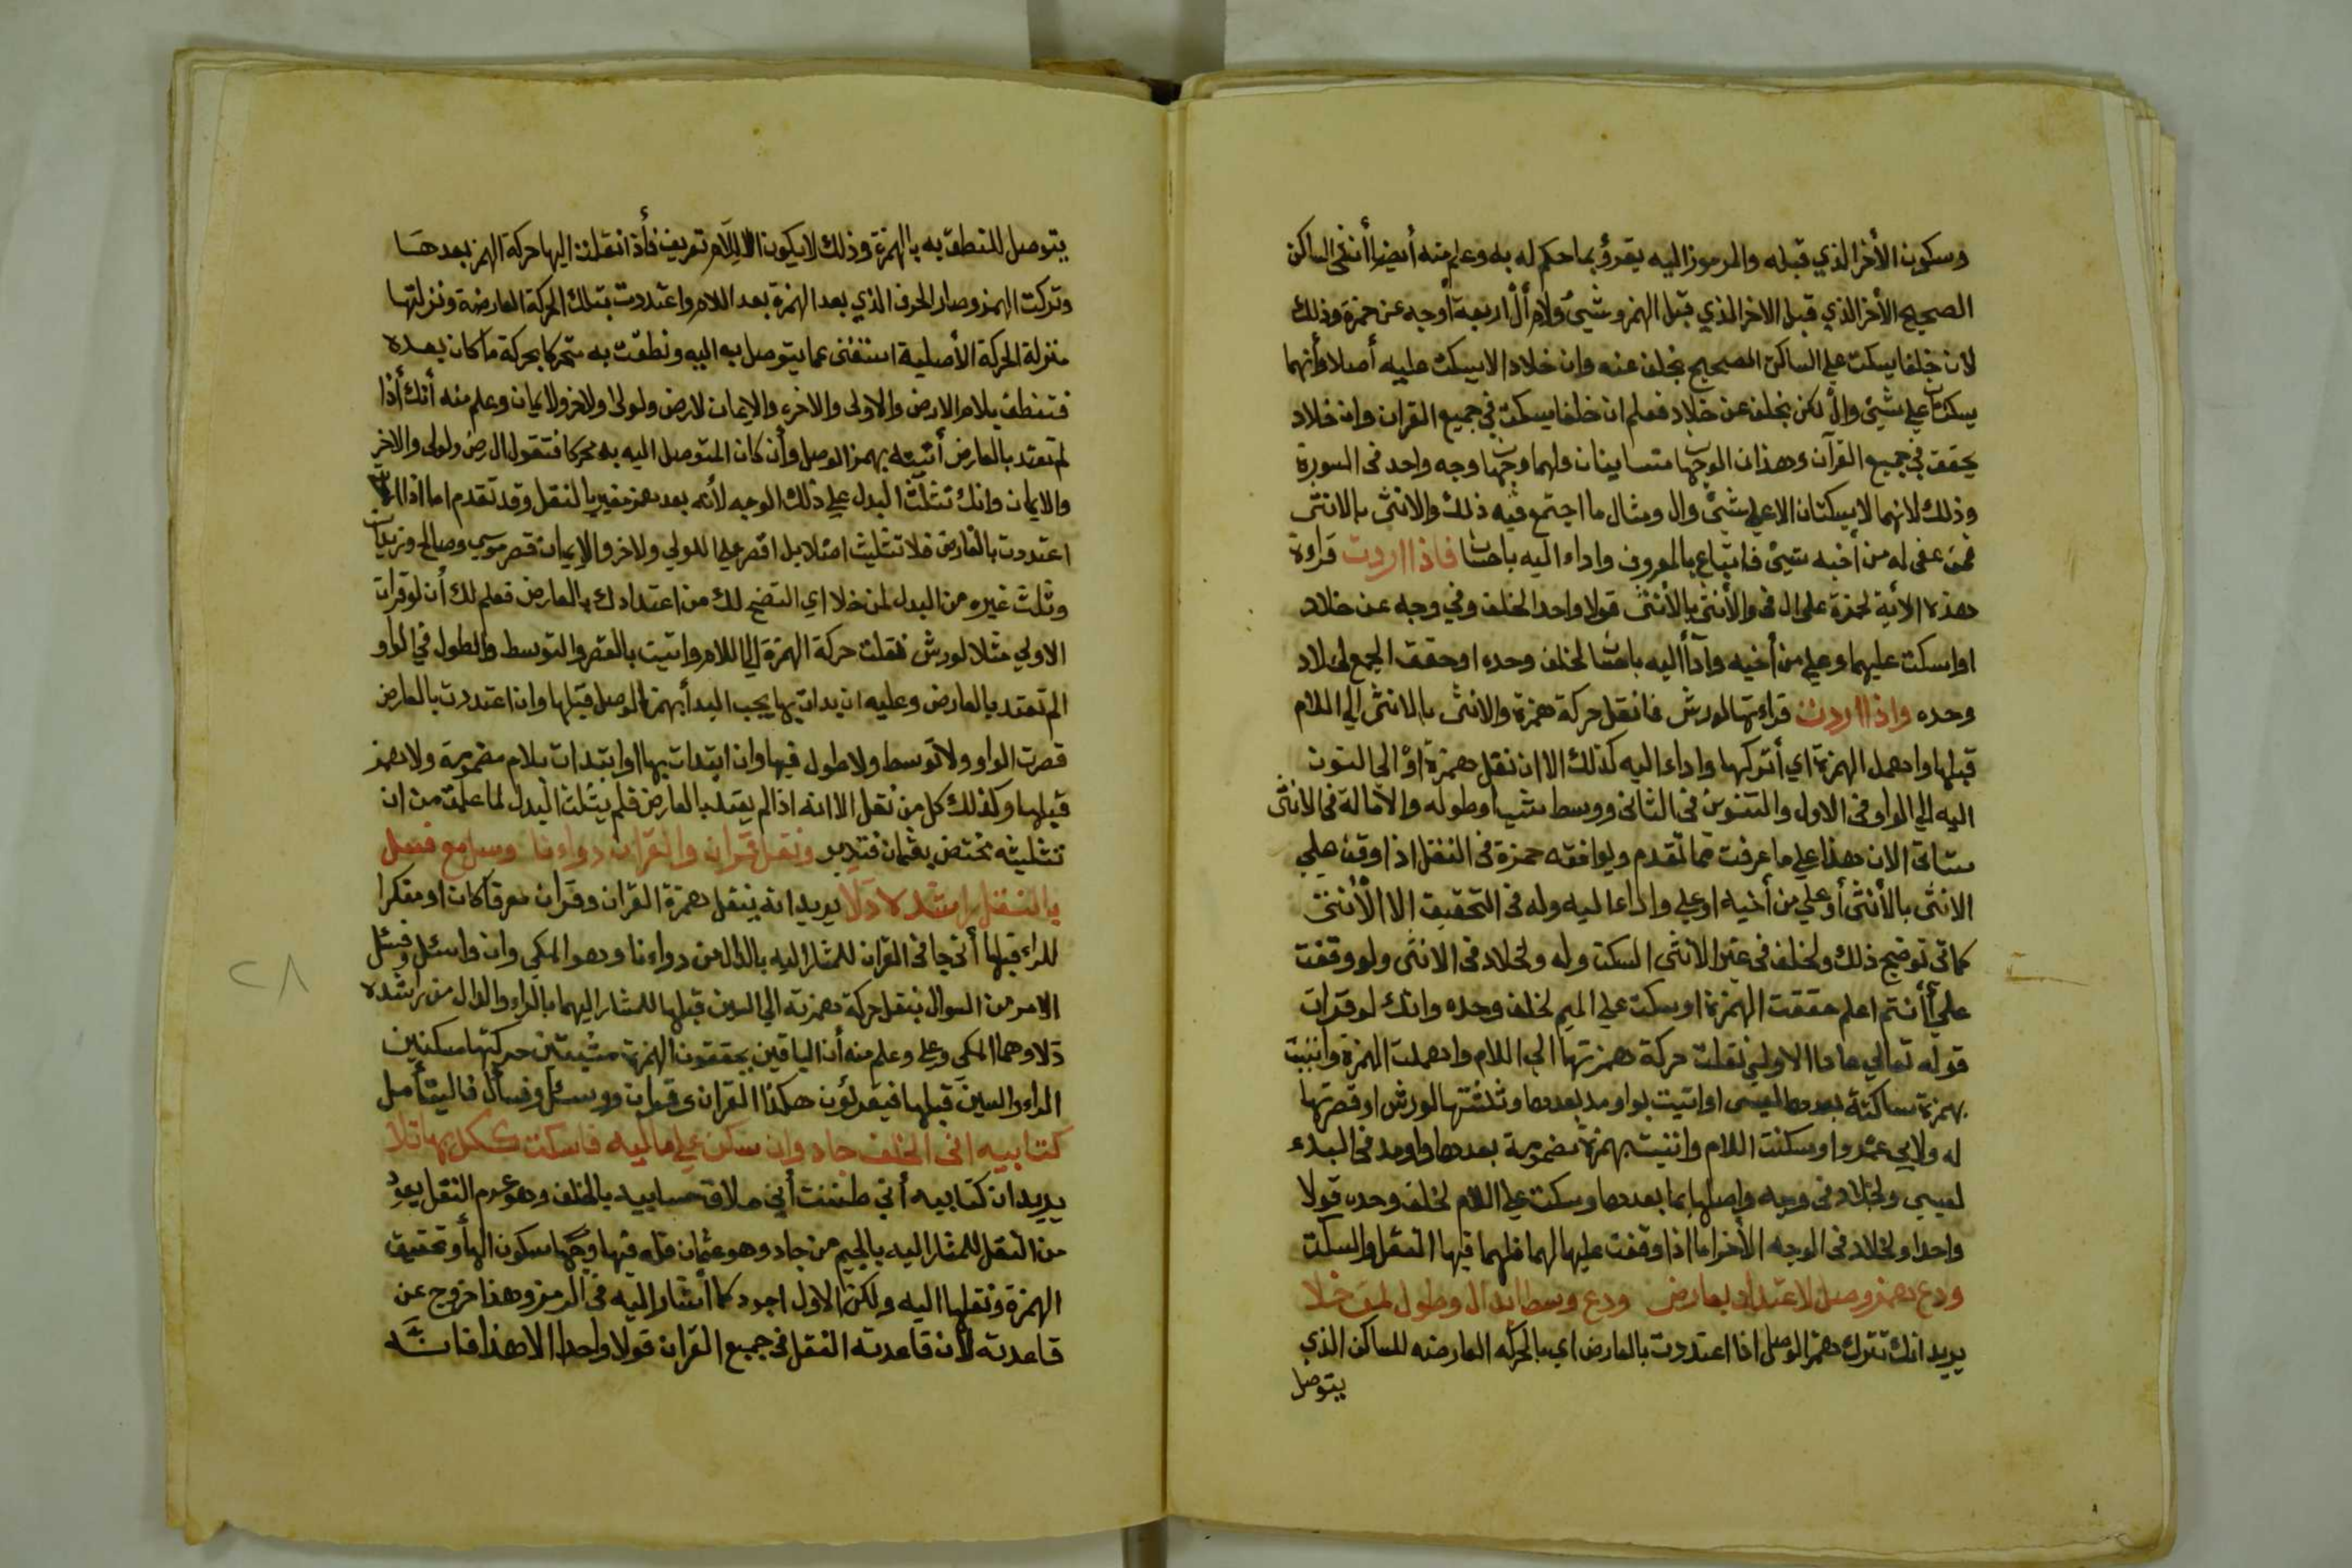 وسكون الأخر الذي قبله والمرموز اليه يقرؤ بما حكم له به وعلم منه أيضا أنفى الساكن
الصحيح الأخر الذي قبل الاخر الذي قبل الهمز وشيئ ولام أل اربعة أوجه عن حمزة وذلك
لأن خلفا يسكت علي الساكن الصحيح بخلف عنه وان خلادا لا يسكت عليه أصلا وأنهما
يسكتان علي شيئ وال لكن بخلف عن خلاد فعلم ان خلفا يسكت في جميع القران وان خلاد
يحقق في جميع القرآن وهذان الوجهان متساينان ولهما وجهان وجه واحد فى السورة
وذلك لانهما لا يسكتان الا علي شيئ وال ومثال ما اجتمع فيه ذلك والانثى بالانثى
فمن عفى له من أخيه شيئ فاتباع بالمعروف واداء اليه باحسان فاذا اردت قراءة
هذه الأية لحمزة على ال فى والأنثى بالأنثى قولا واحدا لخلف وفي وجه عن خلاد
او اسكت عليهما وعلي من أخيه وأدأ اليه باحسان لخلف وحده او حقق الجمع لخلاد
وحده واذا اردت قراءتها لورش فانقل حركة همزة والانثى بالانثى الي اللام
قبلها واهمل الهمزة اي أتركها واداء اليه كذلك الا ان نقل همزة او الي النون
اليه الي الواو فى الاول والتنوين فى الثانى ووسط شيئا وطوله والامالة فى الانثى
ستاتى الان هذا علي ما عرفت مما تقدم ويوافقه حمزة فى النقل اذا وقف علي
الانثى بالأنثى أو علي من أخيه او علي واداء اليه وله فى التحقيق الا الأنثى
كما في توضيح ذلك ولخلف فى غير الأنثى السكت وله ولخلاد فى الانثى ولو وقفت
علي أأنتم اعلم حققت الهمزة او سكت علي الميم لخلف وحده وانك لو قرات
قوله تعالي عادا الاولي نقلت حركة همزتها الي اللام واهملت الهمزة واتيت
بهمزة ساكنة بعدها لعيسى او اتيت بواو مد بعدها وثلثتها لورش او قصرتها
له ولابي عمرو او سكنت اللام واتيت بهمزة مضمومة بعدها واو مد فى البدء
لعيسي ولخلاد فى وجه واصلها بما بعدها وسكت علي اللام لخلف وحده قولا
واحدا ولخلاد فى الوجه الأخر اما اذا وقفت عليها لهما فلهما فيها النقل والسكت
ودع همز وصل لاعتداد بعارض ودع وسط ابدال وطول لمن خلا
يريد انك تترك همز الوصل اذا اعتددت بالعارض اي بالحركه العارضه للساكن الذي
يتوصل
يتوصل للنطق به بالهمزة وذلك لا يكون الا للام تعريف فأذا نقلت اليها حركة الهمز بعدها
وتركت الهمز وصار الحرف الذي بعد الهمزة بعد اللام واعتددت بتلك الحركة العارضة ونزلتها
منزلة الحركة الأصلية استغنى عما يتوصل به اليه ونطقت به متحركا بحركة ما كان بعده
فتنطق بلام الارض والاولى والاخرة والايمان لارض ولولى ولاخر ولايمان وعلم منه أنك أذا
لم تعتد بالعارض أتيت بهمز الوصل وأن كان المتوصل اليه به محركا فتقول الرض ولولى والاخر
والايمان وانك تثلث البدل علي ذلك الوجه لأنه بعد همز مغير بالنقل وقد تقدم اما اذا
اعتددت بالعارض فلا تثليث اصلا بل اقصر علي الاولي ولاخر والايمان قصر موسي وصالح وزبان
وثلث غيره من البدل لمن خلا اي اتضح لك من اعتدادك بالعارض فعلم لك أن لو قرات
الاولي مثلا لورش نقلت حركة الهمزة الي اللام واتيت بالقصر والتوسط والطول في الواو
الم تعتد بالعارض وعليه ان بدات بها يجب البدأ بهمزة الوصل قبلها وان اعتددت بالعارض
قصرت الواو ولا توسط ولا طول فيها وان ابتدات بها ابتدات بلام مضمومة ولا همز
قبلها وكذلك كل من نقل الا انه اذا لم يعتد بالعارض فلم يثلث البدل لما علمت من ان
تثليثه مختص بعثمان فتدبر ونقل قران والقران دواءنا وسل مع فسل
بالنقل راشده دلا يريد انه ينقل همزة القران وقران معرفا كان او منكرا
للراء قبلها أنى جا فى القران للمشار اليه بالدال من دواءنا وهو المكي وان واسئل وفسئل
الامر من السوال بنقل حركة همزته الي السين قبلها للمشار اليهما بالراء والدال من راشده
دلا وهما المكي وعلي وعلم منه أن الباقين يحققون الهمزة مثبتين حركتها مسكنين
الراء والسين قبلها فيقرئون هكذا القران وقران ووسئل وفسأل فاليتأمل
كتابيه انى الخلف جاد وان سكن علي ماليه فاسكت ككل بها تلا
يريد ان كتابيه أني ظننت أني ملاق حسابيه بالخلف وهو عدم النقل يعود
من النقل للمشار اليه بالجيم من جاد وهو عثمان فله فيها وجهان سكون الهأ وتحقيق
الهمزة ونقلها اليه ولكن الاول اجود كما أشار اليه فى الرمز وهذا خروج عن
قاعدته لأن قاعدته النقل فى جميع القران قولا واحدا الا هذا فانه
٢٨